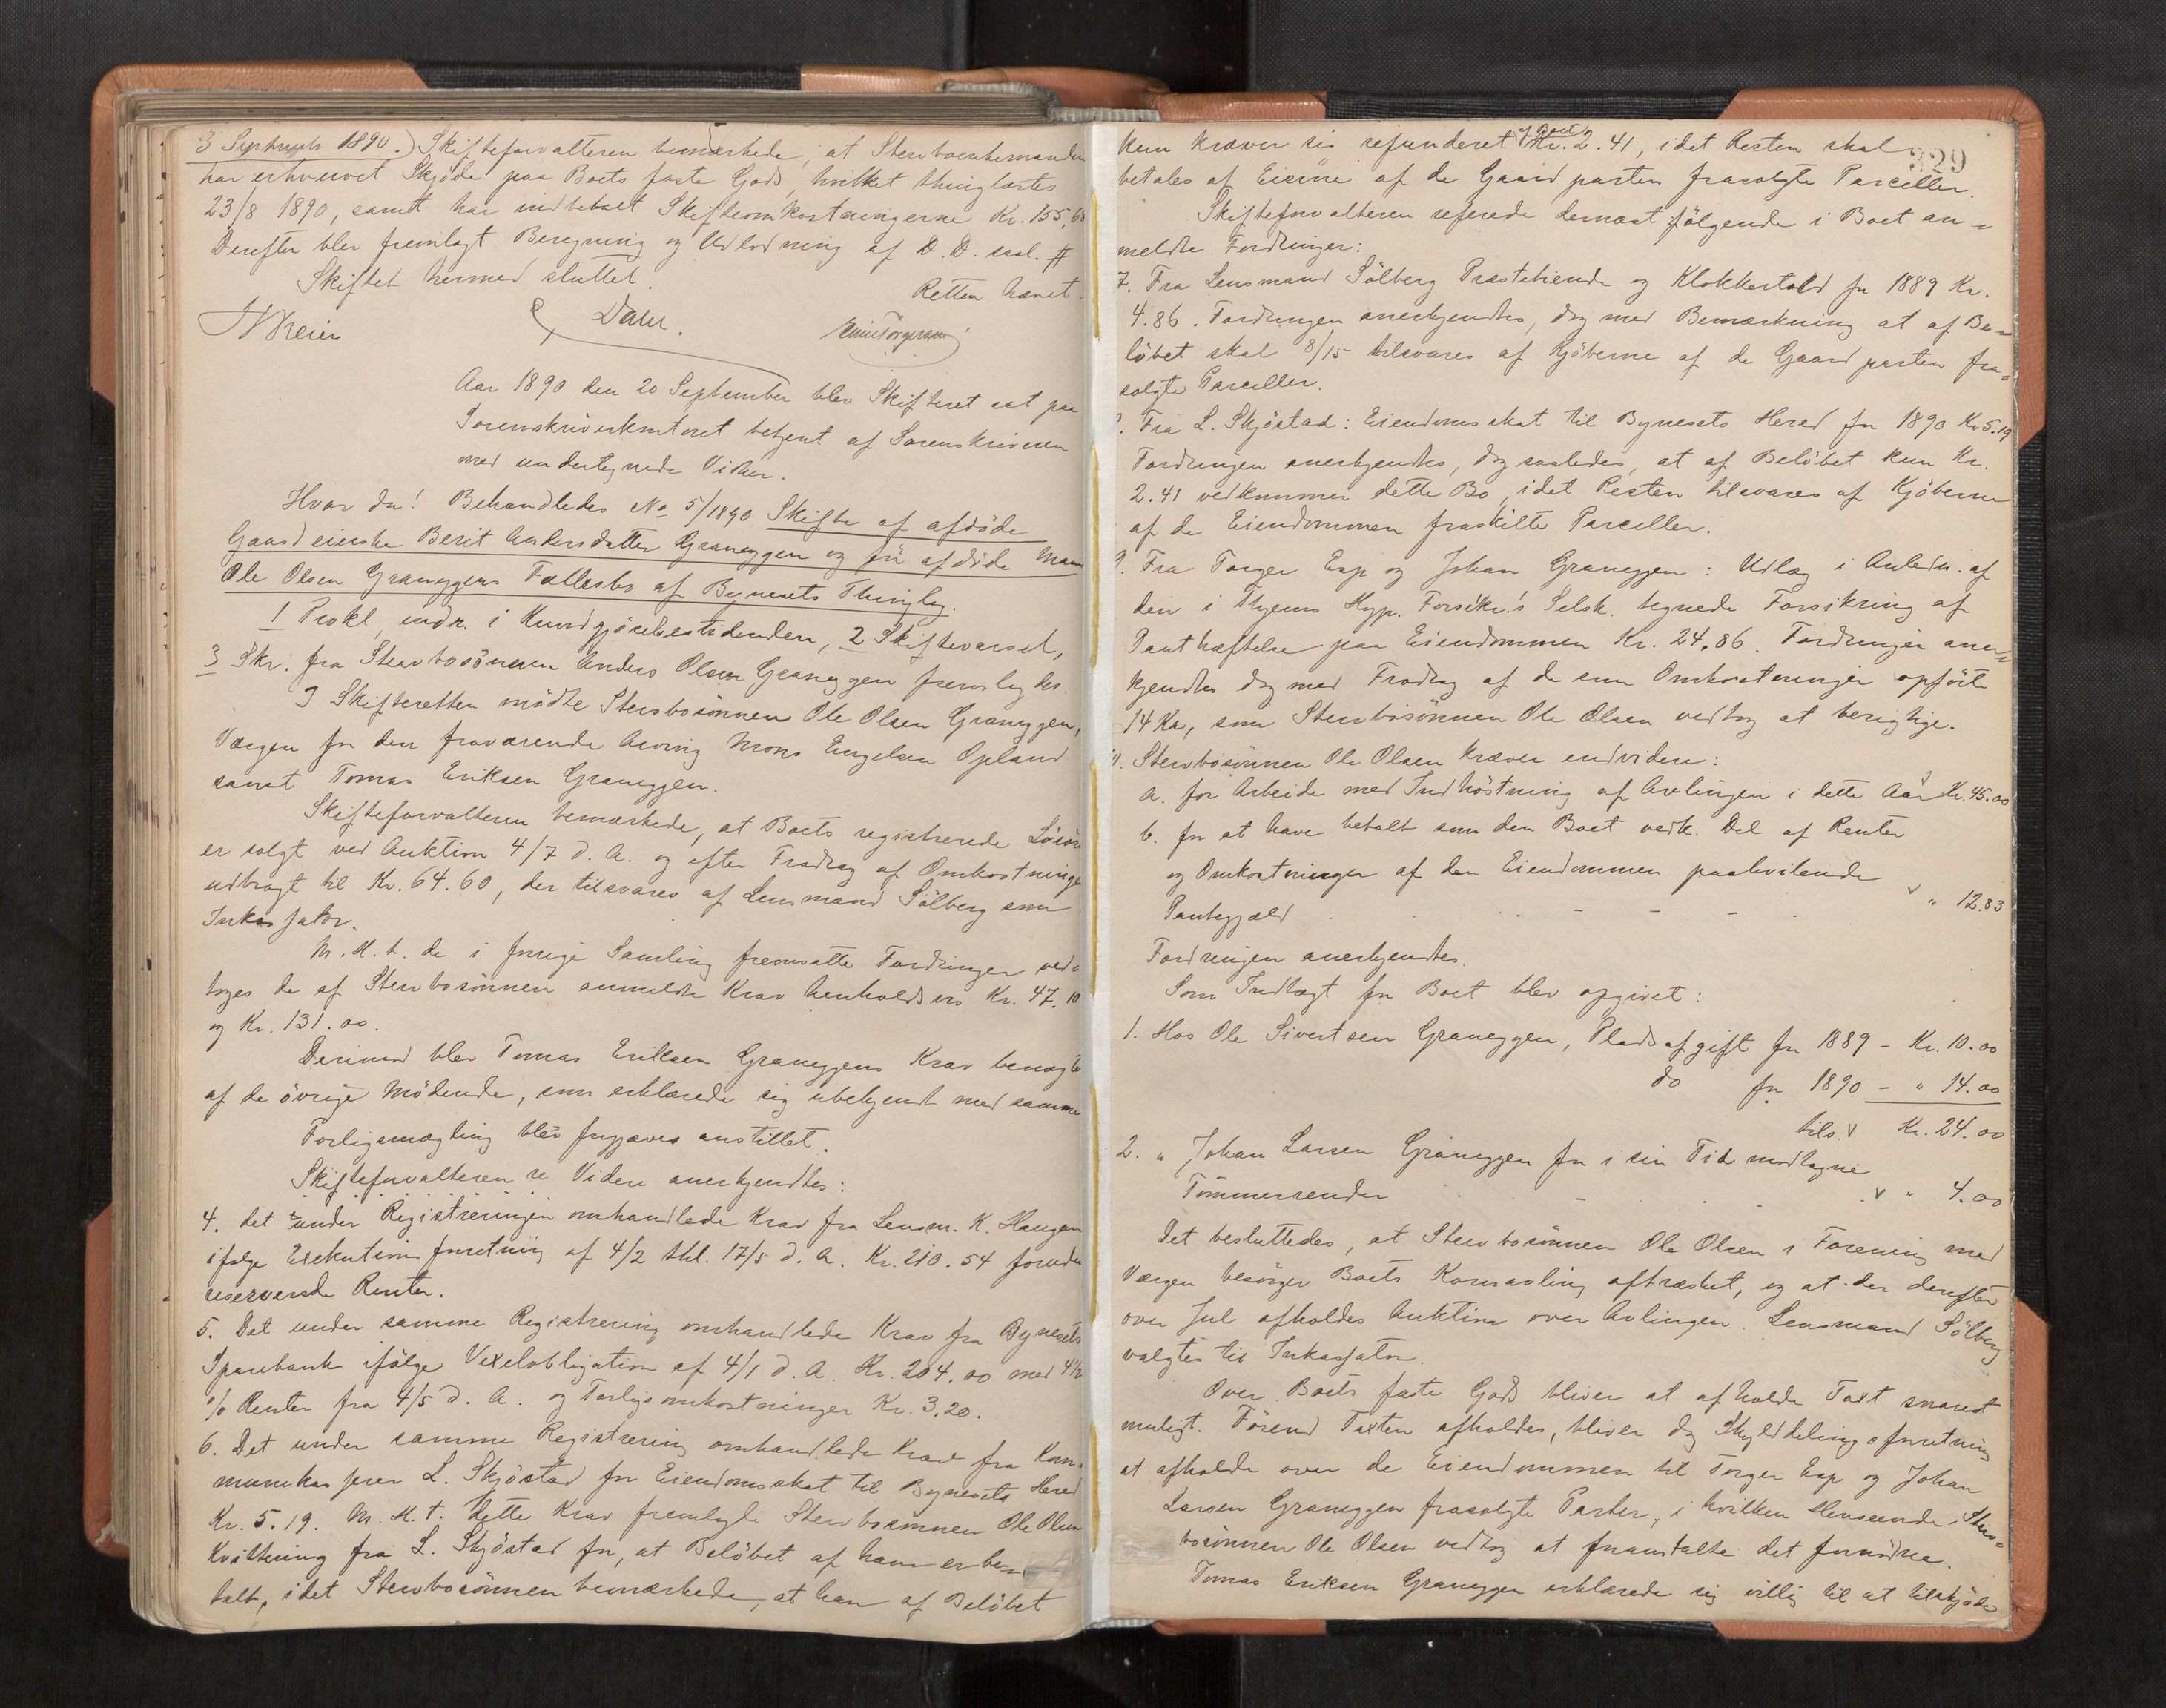 3 Septemb 1890.) Skifteforvalteren bemærkede, at Stervboenkemanden
har erhvervet Skjøde paa Boets faste Gods hvilket thinglæstes
23/8 1890, samt har indbetalt Skifteomkostningerne Kr. 155,68
Derefter blev fremlagt Beregning og Udlodning af D. D. saal. #
Skiftet hermed sluttet.
Retten hævet.
Dahl.
Aar 1890 den 20 September blev Skifteret sat paa
Sorenskriverkontoret betjent af Sorenskriveren
med undertegnede Vidner.
Hvor da! Behandledes No 5/1890 Skifte af afdøde
Gaardeierske Berit Andersdatter Graneggen og før afdøde Mand
Ole Olsen Graneggens Fællesbo af Bynesets Thinglag.
1 Prokl. indr. i Kundgjørelsestidenden, 2 Skiftevarsel,
3 Skr. fra Stervbosønnen Anders Olsen Graneggen fremlagdes.
I Skifteretten mødte Stervbosønnen Ole Olsen Graneggen,
Værgen for den fraværende Arving Mons Engelsen Opland
samt Tomas Eriksen Graneggen.
Skifteforvalteren bemærkede, at Boets registrerede Løsøre
er solgt ved Auktion 4/7 d. A. og efter Fradrag af Omkostninger
udbragt til Kr. 64.60, der tilsvares af Lensmand Sölberg som
Inkassator.
M. H. t. de i forrige Samling fremsatte Fordringer ved-
toges de af Stervbosønnen anmeldte Krav henholdsvis Kr. 47.10
og Kr. 131.00.
Derimod blev Tomas Eriksen Graneggens Krav benægtet
af de øvrige Mødende, som erklærede sig ubekjendt med samme
Forligsmægling blev forgjæves anstillet.
Skifteforvalteren re Videre anerkjendtes:
4. det under Registreringen omhandlede Krav fra Lensm. K. Haugan
ifølge Exekutionsforretning af 4/2 thl. 17/5 d. A. Kr. 210.54 foruden
reserverede Renter.
5. Det under samme Registrering omhandlede Krav fra Bynesets
Sparebank ifølge Vexelobligation af 4/1 d. A. Kr. 204.00 med 4 1/2
% Renter fra 4/5 d. A. og Forligsomkostninger Kr. 3.20.
6. Det under samme Registrering omhandlede Krav fra Kom-
munekasserer L. Skjöstad for Eiendomsskat til Bynesets Hered
Kr. 5.19. M. H. t. dette Krav fremlagde Stervbosønnen Ole Olsen
Kvittering fra L. Skjöstad for, at Beløbet af ham er be-
talt, idet Stervbosønnen bemærkede, at han af Beløbet
329
kun kræver sig refunderet af Boet Kr. 2.41, idet Resten skal
betales af Eierne af de Gaardparten frasolgte Parceller.
Skifteforvalteren refererede dernæst følgende i Boet an-
meldte Fordringer:
7. Fra Lensmand Sölberg Præstetiende og Klokkertold for 1889 Kr.
4.86. Fordringen anerkjendtes, dog med Bemærkning at af Be-
løbet skal 8/15 tilsvares af Kjøberne af de Gaardparten fra-
solgte Parceller.
8. Fra L. Skjöstad: Eiendomsskat til Bynesets Hered for 1890 Kr. 5.19
Fordringen anerkjendtes, dog saaledes, at af Beløbet kun Kr.
2.41 vedkommer dette Bo, idet Resten tilsvares af Kjøberne
af de Eiendommen fraskilte Parceller.
9. Fra Torger Esp og Johan Graneggen: Udlæg i Anledn. af
den i Thjems Hyp. Forsikr.s Selsk. tegnede Forsikring af
Panthæftelse paa Eiendommen Kr. 24.86. Fordringen aner-
kjendtes dog med Fradrag af de som Omkostninger opførte
14 Kr, som Stervbosønnen Ole Olsen vedtog at berigtige.
10. Stervbosønnen Ole Olsen kræver endvidere:
a. for Arbeide med Indhøstning af Avlingen i dette Aar Kr. 45.00
b. for at have betalt som den Boet vedk. Del af Renter
og Omkostninger af den Eiendommen paahvilende
Pantegjæld . . . - - - . " 12.83
Fordringen anerkjendtes.
Som Indtægt for Boet blev opgivet:
1. Hos Ole Sivertsen Graneggen, Pladsafgift for 1889 - Kr. 10.00
do for 1890 - " 14.00
tils. Kr. 24.00
2. " Johan Larsen Graneggen for i sin Tid modtagne
Tømmerrender . - . " 4.00
Det besluttedes, at Stervbosønnen Ole Olsen i Forening med
Værgen besørger Boets Kornavling aftræsket, og at der derefter
over Jul afholdes Auktion over Avlingen. Lensmand Sölberg
valgtes til Inkassator.
Over Boets faste Gods bliver at afholde Taxt snarest
muligt. Førend Taxten afholdes, bliver dog Skylddelingsforretning
at afholde over de Eiendommen til Torger Esp og Johan
Larsen Graneggen frasolgte Parter, i hvilken Henseende Sterv-
bosønnen Ole Olsen vedtog at foranstalte det fornødne.
Tomas Eriksen Graneggen erklærede sig villig til at tilskjøde